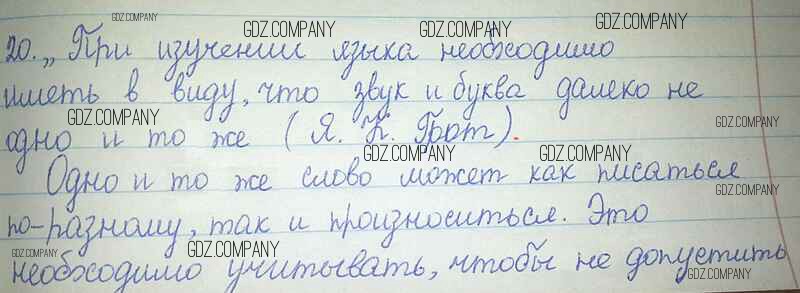 GDZ.COMPANY
GDZ.COMPANY GDZ.COMPANY GDZ.COMPANY
20. „При изучении языка необходимо
GDZ.COMPANY
GDZ.COMPANY
иметь в виду, что звук и буква далеко не
GDZ.COMPANY
GDZ.COMPANY
одно и то же (Я. К. Грот).
GDZ.COMPANY GDZ.COMPANY
Одно и то же слово может как писаться
GDZ.COMPANY
по-разному, так и произноситься. Это
GDZ.COMPANY GDZ.COMPANY GDZ.COMPANY
необходимо учитывать, чтобы не допустить
GDZ.COMPANY